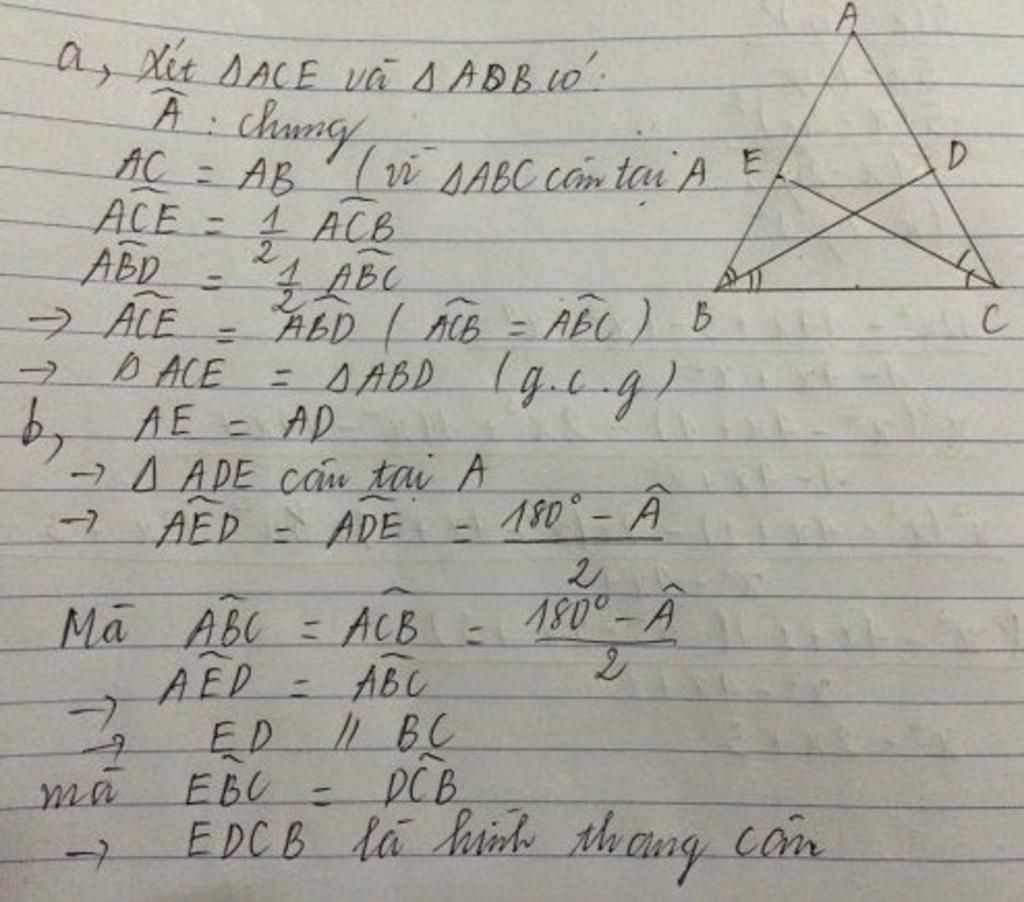 a, Xét ΔACE và ΔADB có:
Â : chung
AC = AB (vì ΔABC cân tại A
ACE = 1/2 ACB
ABD = 1/2 ABC
→ ACE = ABD ( ACB = ABC )
→ Δ ACE = ΔABD (g.c.g)
b, AE = AD
→ Δ ADE cân tại A
→ AED = ADE = 180° - Â / 2
Mà ABC = ACB = 180° - Â / 2
→ AED = ABC
→ ED // BC
mà EBC = DCB
→ EDCB là hình thang cân
A
E
D
B
C